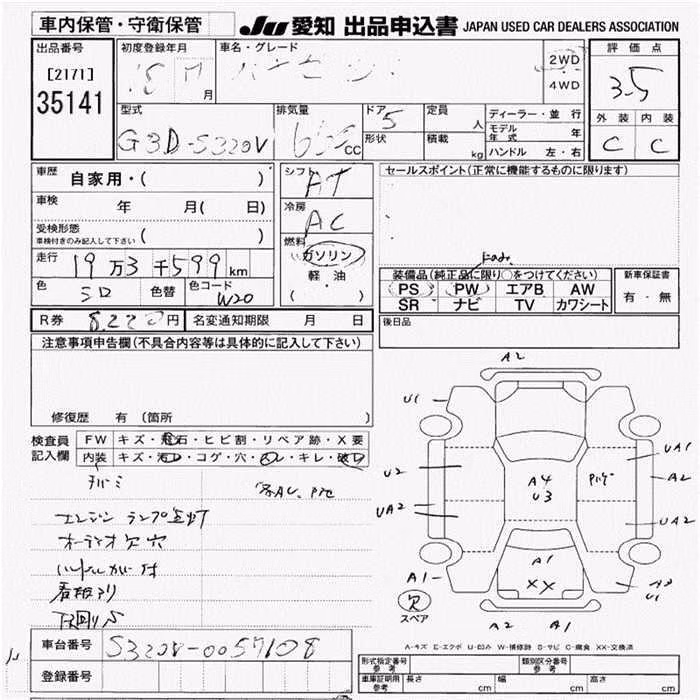 車内保管・守衛保管
JU 愛知 出品申込書 JAPAN USED CAR DEALERS ASSOCIATION
出品番号
[2171]
35141
初度登録年月
月
車名・グレード
2WD
4WD
評価点
3.5
外装 内装
C C
型式
排気量
cc
ドア 5
形状
定員 人
積載 kg
ディーラー・並行
モデル年式 年
ハンドル 左・右
車歴 自家用・( )
車検 年 月( 日)
受検形態
車検付きのみ記入して下さい ( )
走行 19万3千599km
色
色替
色コード W20
シフト AT
冷房 AC
燃料
ガソリン
軽・油
( )
セールスポイント(正常に機能するものに限ります)
装備品(純正品に限り○をつけてください)
PS PW エアB AW
SR ナビ TV カワシート
新車保証書
有・無
R券 8,220円 名変通知期限 月 日
後日品
注意事項申告欄(不具合内容等は具体的に記入して下さい)
修復歴 有 (箇所 )
検査員記入欄
FW キズ・飛石・ヒビ割・リペア跡・X要
内装 キズ・汚れ・コゲ・穴・スレ・キレ・破れ
エンジン ランプ点灯
オーディオ欠 穴
ハンドルカバー付
看板アリ
下回りS
車台番号 S320V-0057108
登録番号
A2
U1
U2
UA2
A1
A4
U3
A1
XX
UA1
A2
UA2
U1
欠
スペア
A2 A1
A-キズ E-エクボ U-凹み W-補修跡 S-サビ C-腐食 XX-交換済
形式指定番号 参考
類別区分番号 参考
車庫証明用 参考 長さ cm 幅 cm 高さ cm